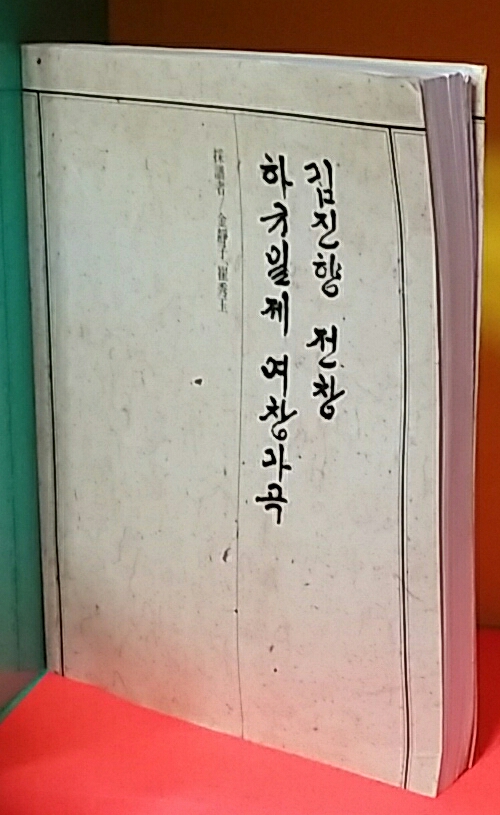 김진향 전창
하규일제 여창가곡
採譜者／金靜子、崔秀玉